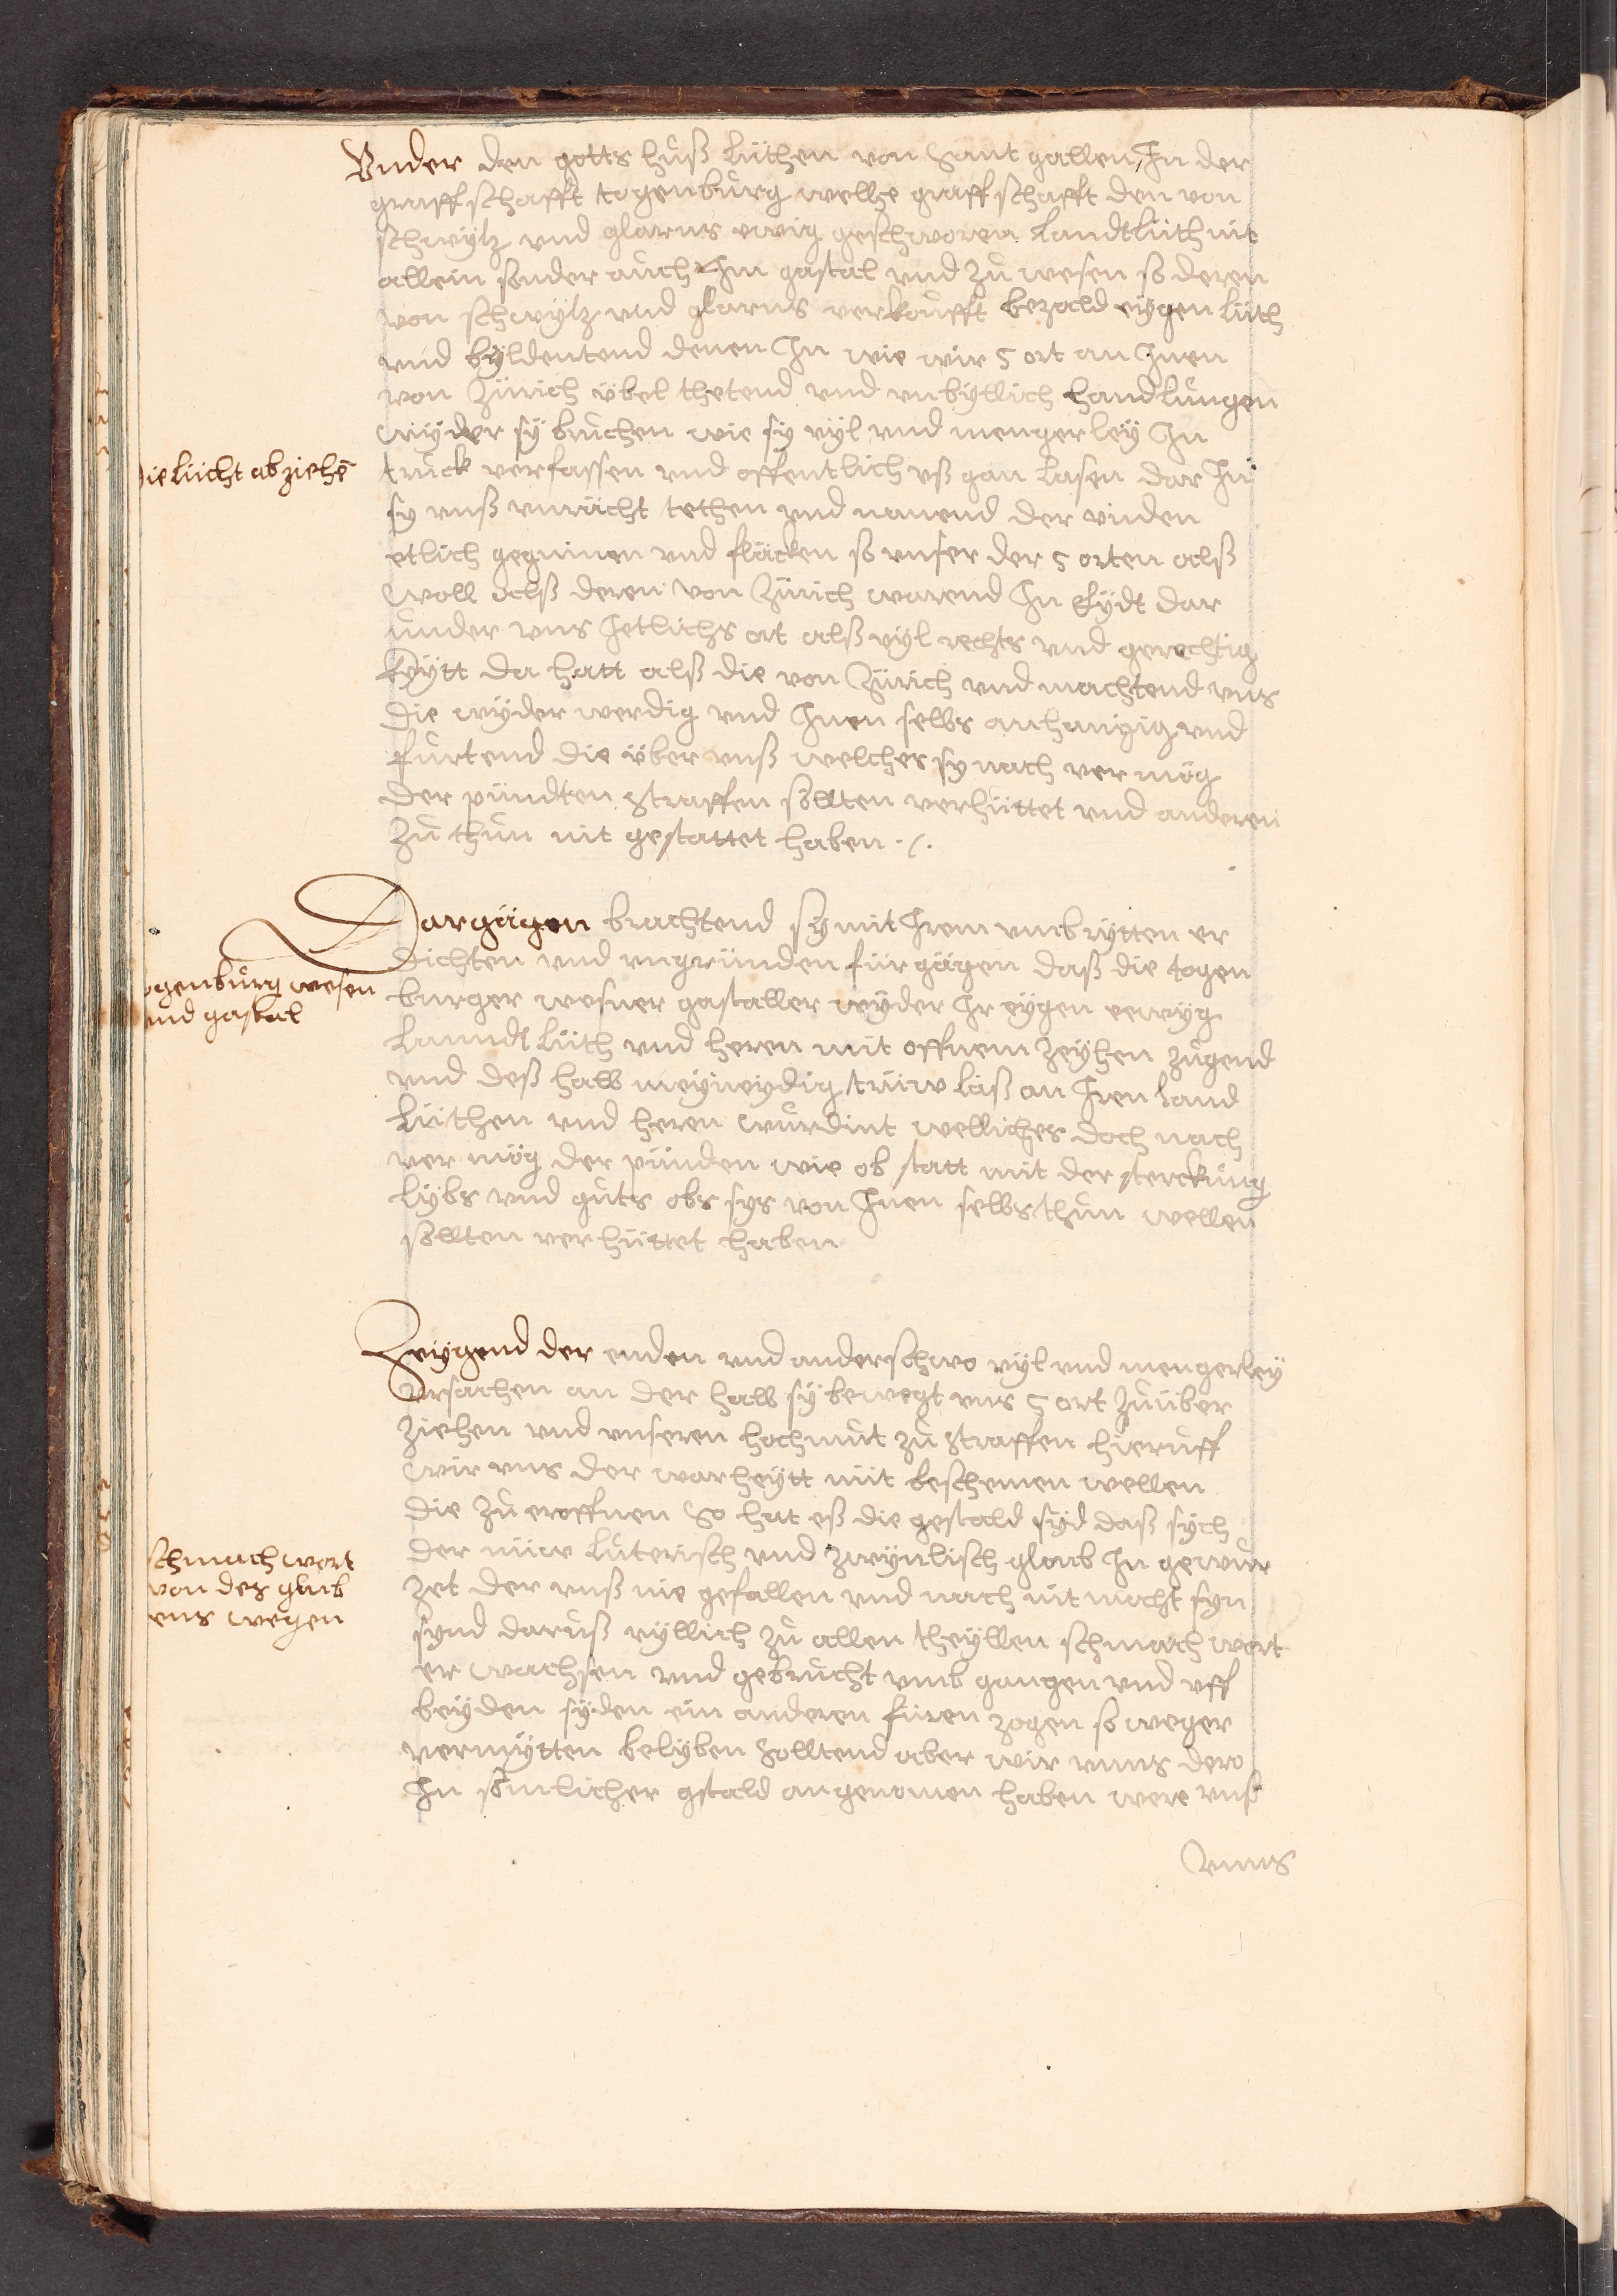 Vnder den gotts huß lüthen von Sant gallen, In der
graffschafft togenburg wellhe graffschafft den von
schwÿtz vnd glarus ewig geschworen landtlüth nit
allein sonder auch Im gastal vnd zu wesen so deren
von schwÿtz vnd glarus verkoufft bezald eÿgen lüth
vnd bÿldentend denen In wie wir 5 ort an Inen
von Zürich übel thetend vnd vnbÿllich handlungen
wÿder sÿ bruchen wie sy vÿl vnd mengerleÿ In
truck verfassen vnd offentlich vß gan lasen dar In
sy vnß vnrächt tethen vnd namend der vnden
etlich geginnen vnd fläcken so vnser der 5 orten alß
woll alß deren von Zürich warend In Eÿdt dar
under vns Jetlichs ort alß vÿl rechts vnd gerechtig
keÿtt da hatt alß die von Zürich vnd machtend vns
die wÿder werdig vnd Inen selbs anhangig vnd
furtend die über vnß welches sy nach ver mög
der pündten Straffen sollten verhüttet vnd anderen
zu thun nit gestattet haben ./.
die lücht abziehē
Dargägen brachtend sÿ mit Irem vmbrÿtten er
dichten vnd vngründen für gägen daß die togen
burger wesner gastaller wÿder Ir eÿgen eewÿg
lanndt lüth vnd heren mit offnem zeÿhen zugend
vnd deß halb meÿneÿdig trüw läß an Iren land
lüthen vnd heren wurdint welliches doch nach
ver mög der pünden wie ob statt mit der sterckung
lÿbs vnd guts obs sys von Inen selbs thun wellen
sollten ver hüttet haben
ogenburg wesen
und gastal
Zeÿgend der enden vnd anderschwo vÿl vnd mengerleÿ
vrsachen an der halb sÿ bewegt vns 5 ort zu über
ziehen vnd vnseren hochmut zu Straffen hieruff
wir vns der warheÿtt nüt beschemen wellen
die zu eroffnen So hat eß die gestald sÿd daß sÿch
der nüw luterisch vnd zwÿnlisch gloub In gewur
zet der vnß nie gefallen vnd nach nit macht syn
synd daruß vÿllich zu allen theÿllen schmach wort
er wachsen vnd gebrucht vmb gangen vnd vff
beÿden sÿden ein anderen füren zogen so weger
vermÿtten belÿben Solltend aber wir vnns dero
In sömlicher gstald angenomen haben were vnß
schmach wort
von des glaub
ens wegen
vnns